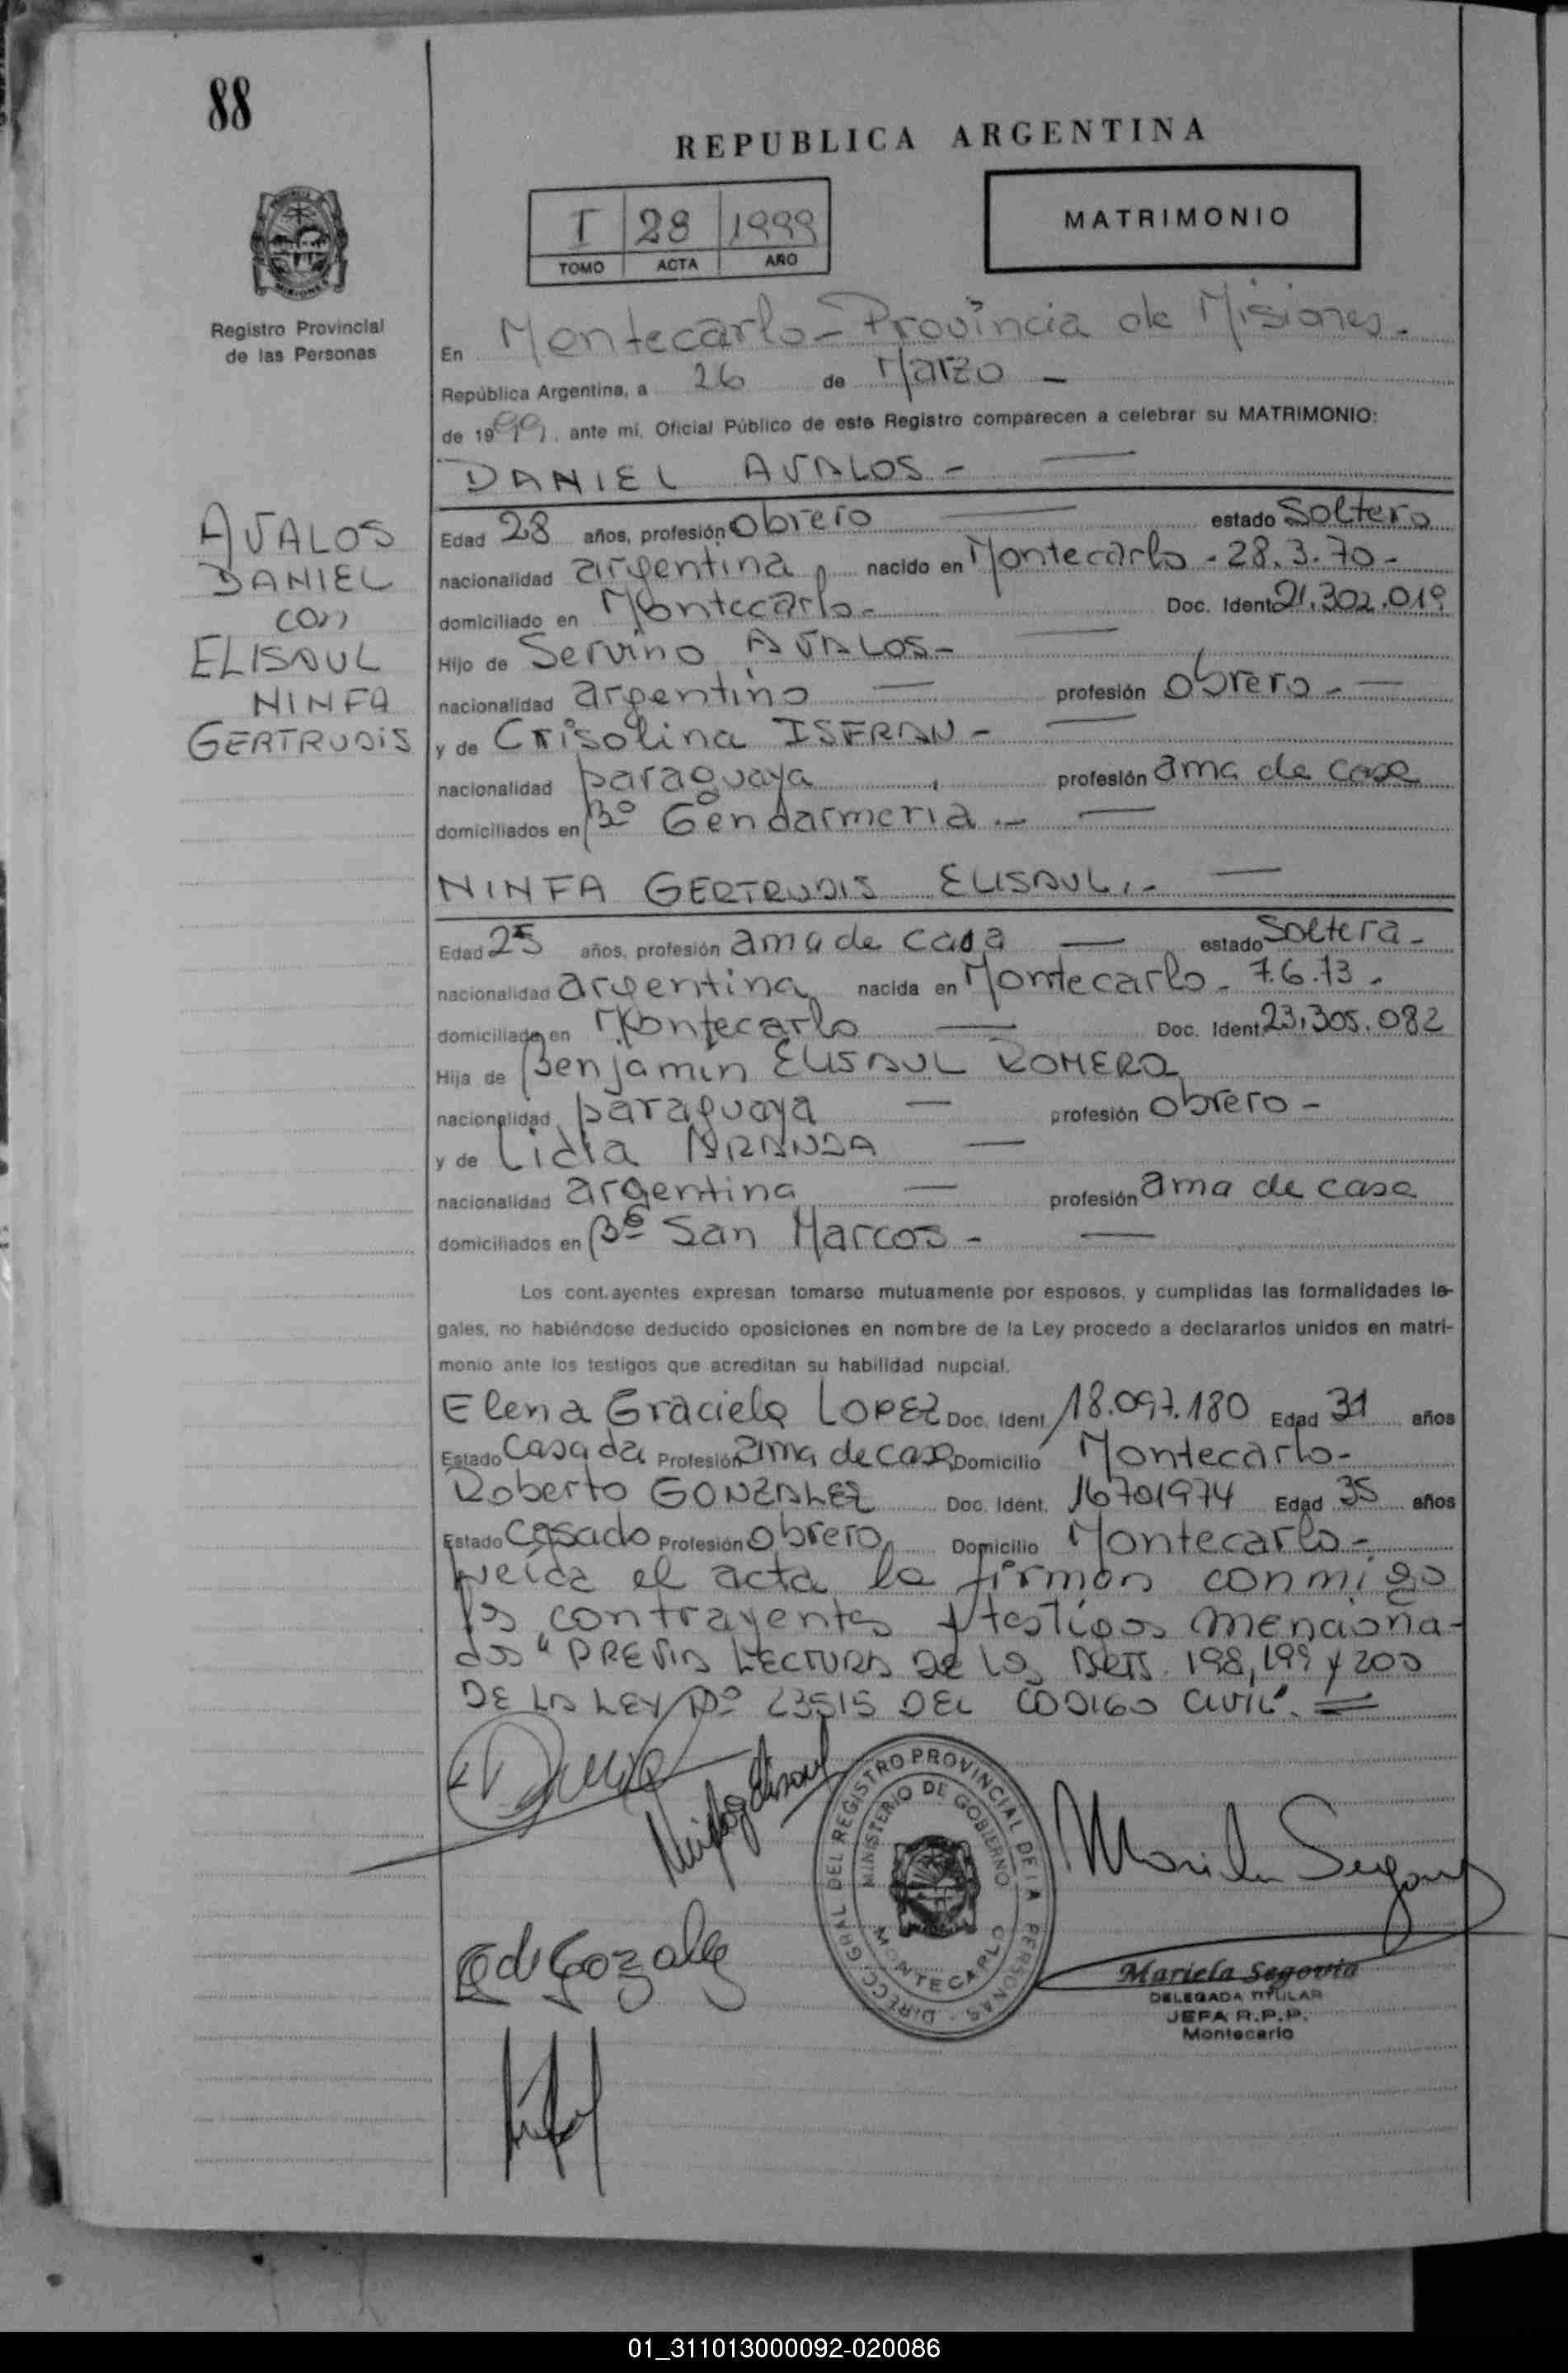 88
REPUBLICA ARGENTINA
I 28 1999
TOMO ACTA AÑO
MATRIMONIO
Registro Provincial
de las Personas
En Montecarlo - Provincia de Misiones -
República Argentina, a 26 de Marzo -
de 1999, ante mi, Oficial Público de este Registro comparecen a celebrar su MATRIMONIO:
DANIEL AVALOS -
AVALOS
DANIEL
con
ELISAUL
NINFA
GERTRUDIS
Edad 28 años, profesión obrero estado Soltero
nacionalidad argentina, nacido en Montecarlo - 28.3.70 -
domiciliado en Montecarlo - Doc. Ident. 21.302.019
Hijo de Servino AVALOS -
nacionalidad argentino profesión obrero -
y de Crisolina ISFRAN -
nacionalidad paraguaya profesión ama de casa
domiciliados en Bº Gendarmeria. -
NINFA GERTRUDIS ELISAUL. -
Edad 25 años, profesión ama de casa estado Soltera -
nacionalidad argentina nacida en Montecarlo - 7.6.73 -
domiciliada en Montecarlo Doc. Ident. 23.305.082
Hija de Benjamin ELISAUL ROMERO
nacionalidad paraguaya profesión obrero -
y de Lidia ARANDA
nacionalidad argentina profesión ama de casa
domiciliados en Bº San Marcos -
Los cont.ayentes expresan tomarse mutuamente por esposos, y cumplidas las formalidades le-
gales, no habiéndose deducido oposiciones en nombre de la Ley procedo a declararlos unidos en matri-
monio ante los testigos que acreditan su habilidad nupcial.
Elena Graciela LOPEZ Doc. Ident. 18.097.180 Edad 31 años
Estado Casada Profesión ama de casa Domicilio Montecarlo -
Roberto GONZALEZ Doc. Ident. 16701974 Edad 35 años
Estado Casado Profesión obrero Domicilio Montecarlo -
Leida el acta la firman conmigo
los contrayentes y testigos menciona-
dos "PREVIA LECTURA DE LOS ARTS. 198, 199 y 200
DE LA LEY Nº 23515 DEL CODIGO CIVIL".
DIRECC. GRAL. DEL REGISTRO PROVINCIAL DE LA PERSONAS -
MINISTERIO DE GOBIERNO
MONTECARLO
Mariela Segovia
Mariela Segovia
DELEGADA TITULAR
JEFA R.P.P.
Montecarlo
01_311013000092-020086